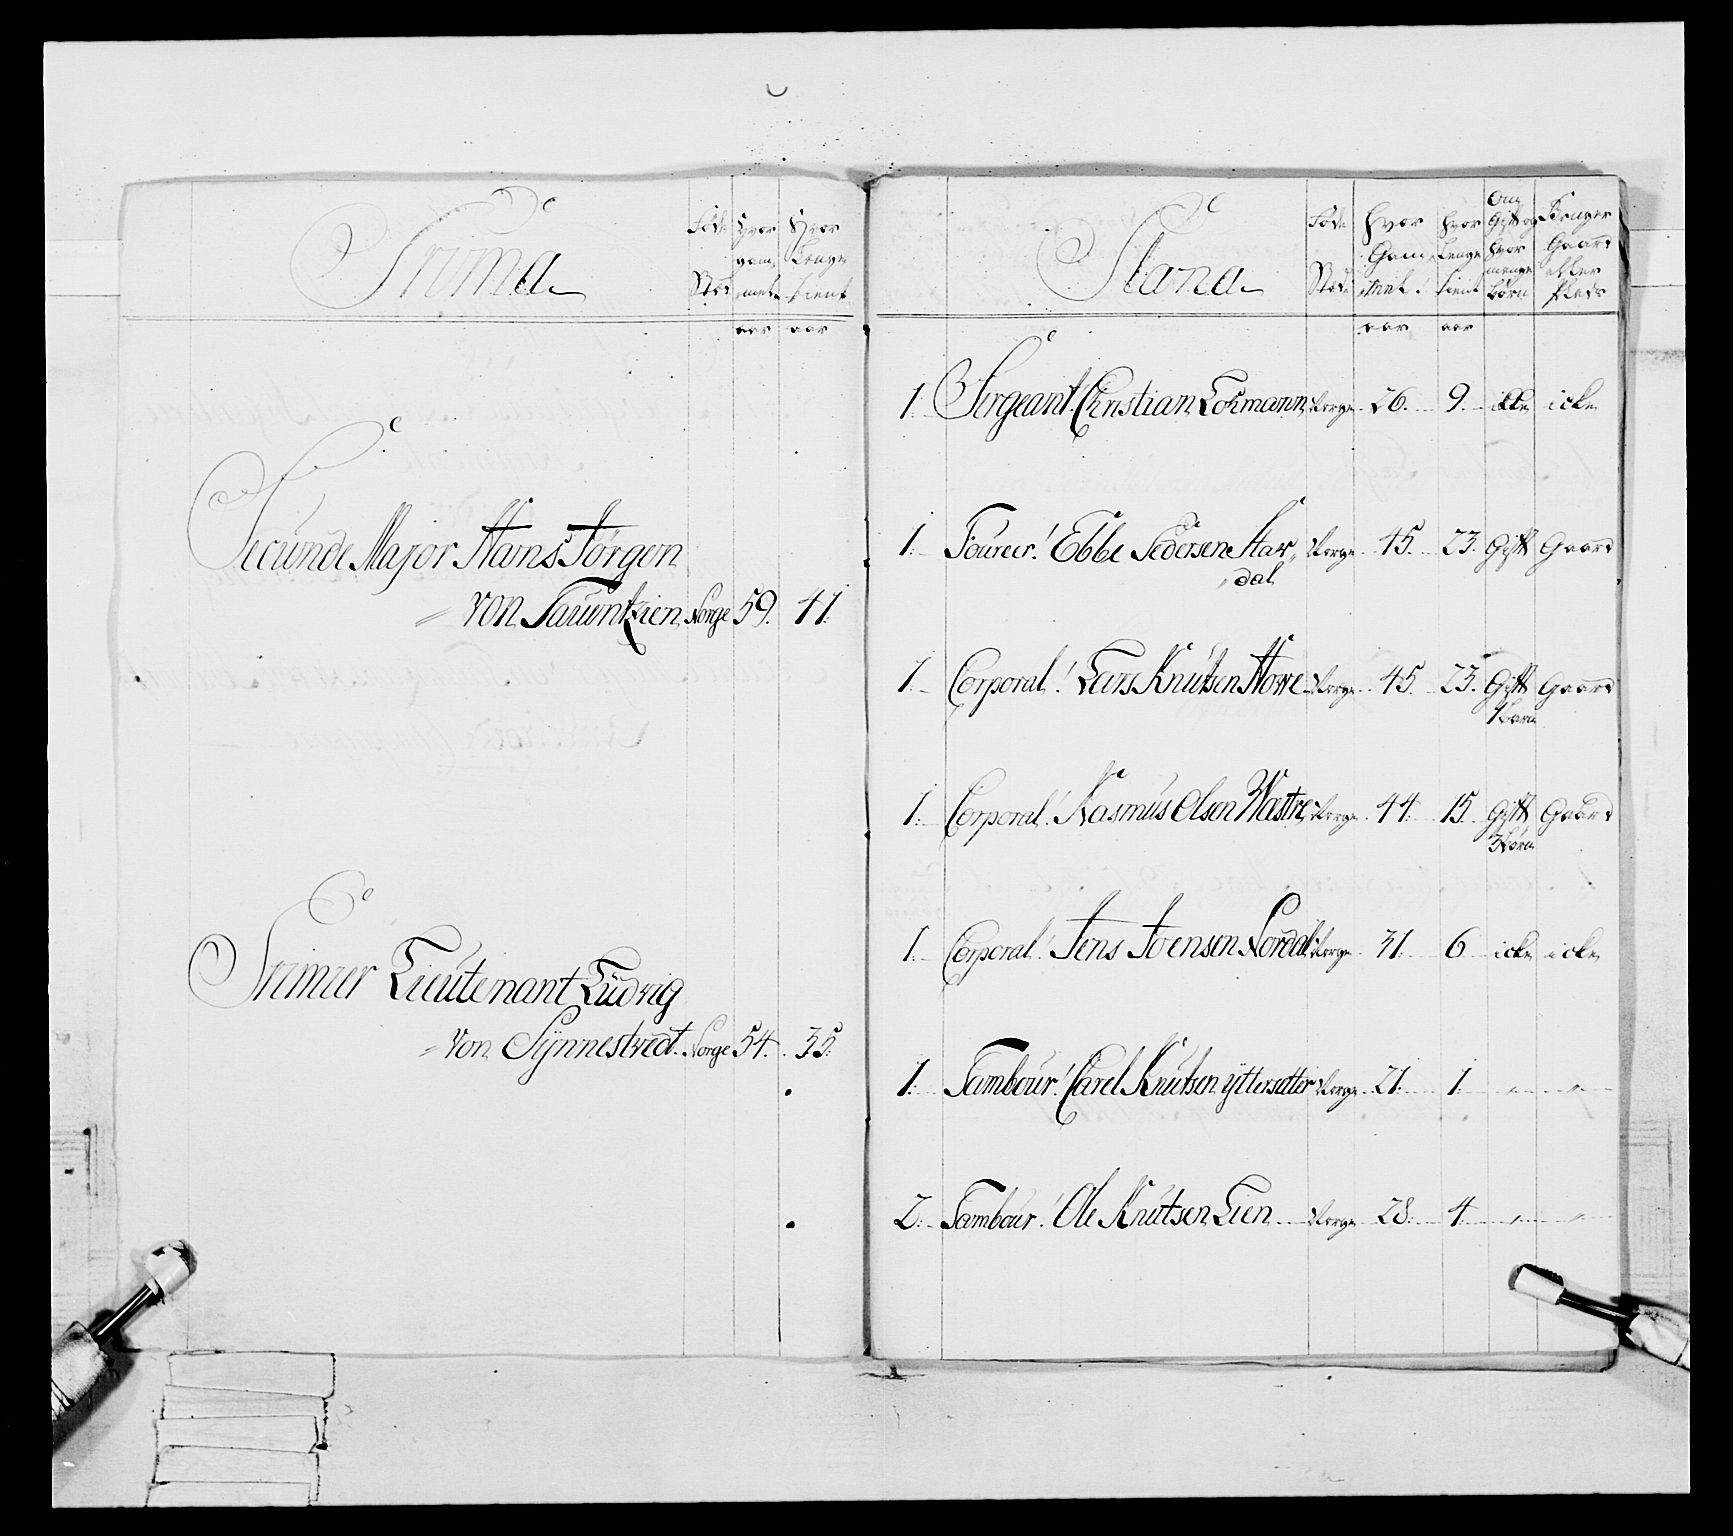 Prima
Føde Sted
Hvor gam¸ mel
Hvor Lenge tient
aar aar
Secunde Major Hans Jørgen
von Tauentzien Norge 59. 41.
Primier Lieutenant Ludvig
von Synnestvedt. Norge 54. 35.
Plana
Føde Sted
Hvor Gam¸ mel.
Hvor Lenge tient
Om Gift og hvor mange børn
Bruger Gaard eller Plads
aar aar
1. Sergeant. Christian Lohmann Norge 26. 9. icke icke
1. Foureer. Ebbe Pedersen Har¸ Norge 45. 23. Gift Gaard
dal
1. Corporal. Lars Knutsen Howe Norge 45. 23. Gift Gaard
1 barn
1. Corporal. Rasmus Olsen Wæstre Norge 44. 15. Gift Gaard
3 børn
1. Corporal. Jens Joensen Nordal Norge 31. 6 icke icke
1. Tambour. Carel Knutsen Yttersætter Norge 21. 1. " "
2. Tambour. Ole Knutsen Lien Norge 28. 4 " "